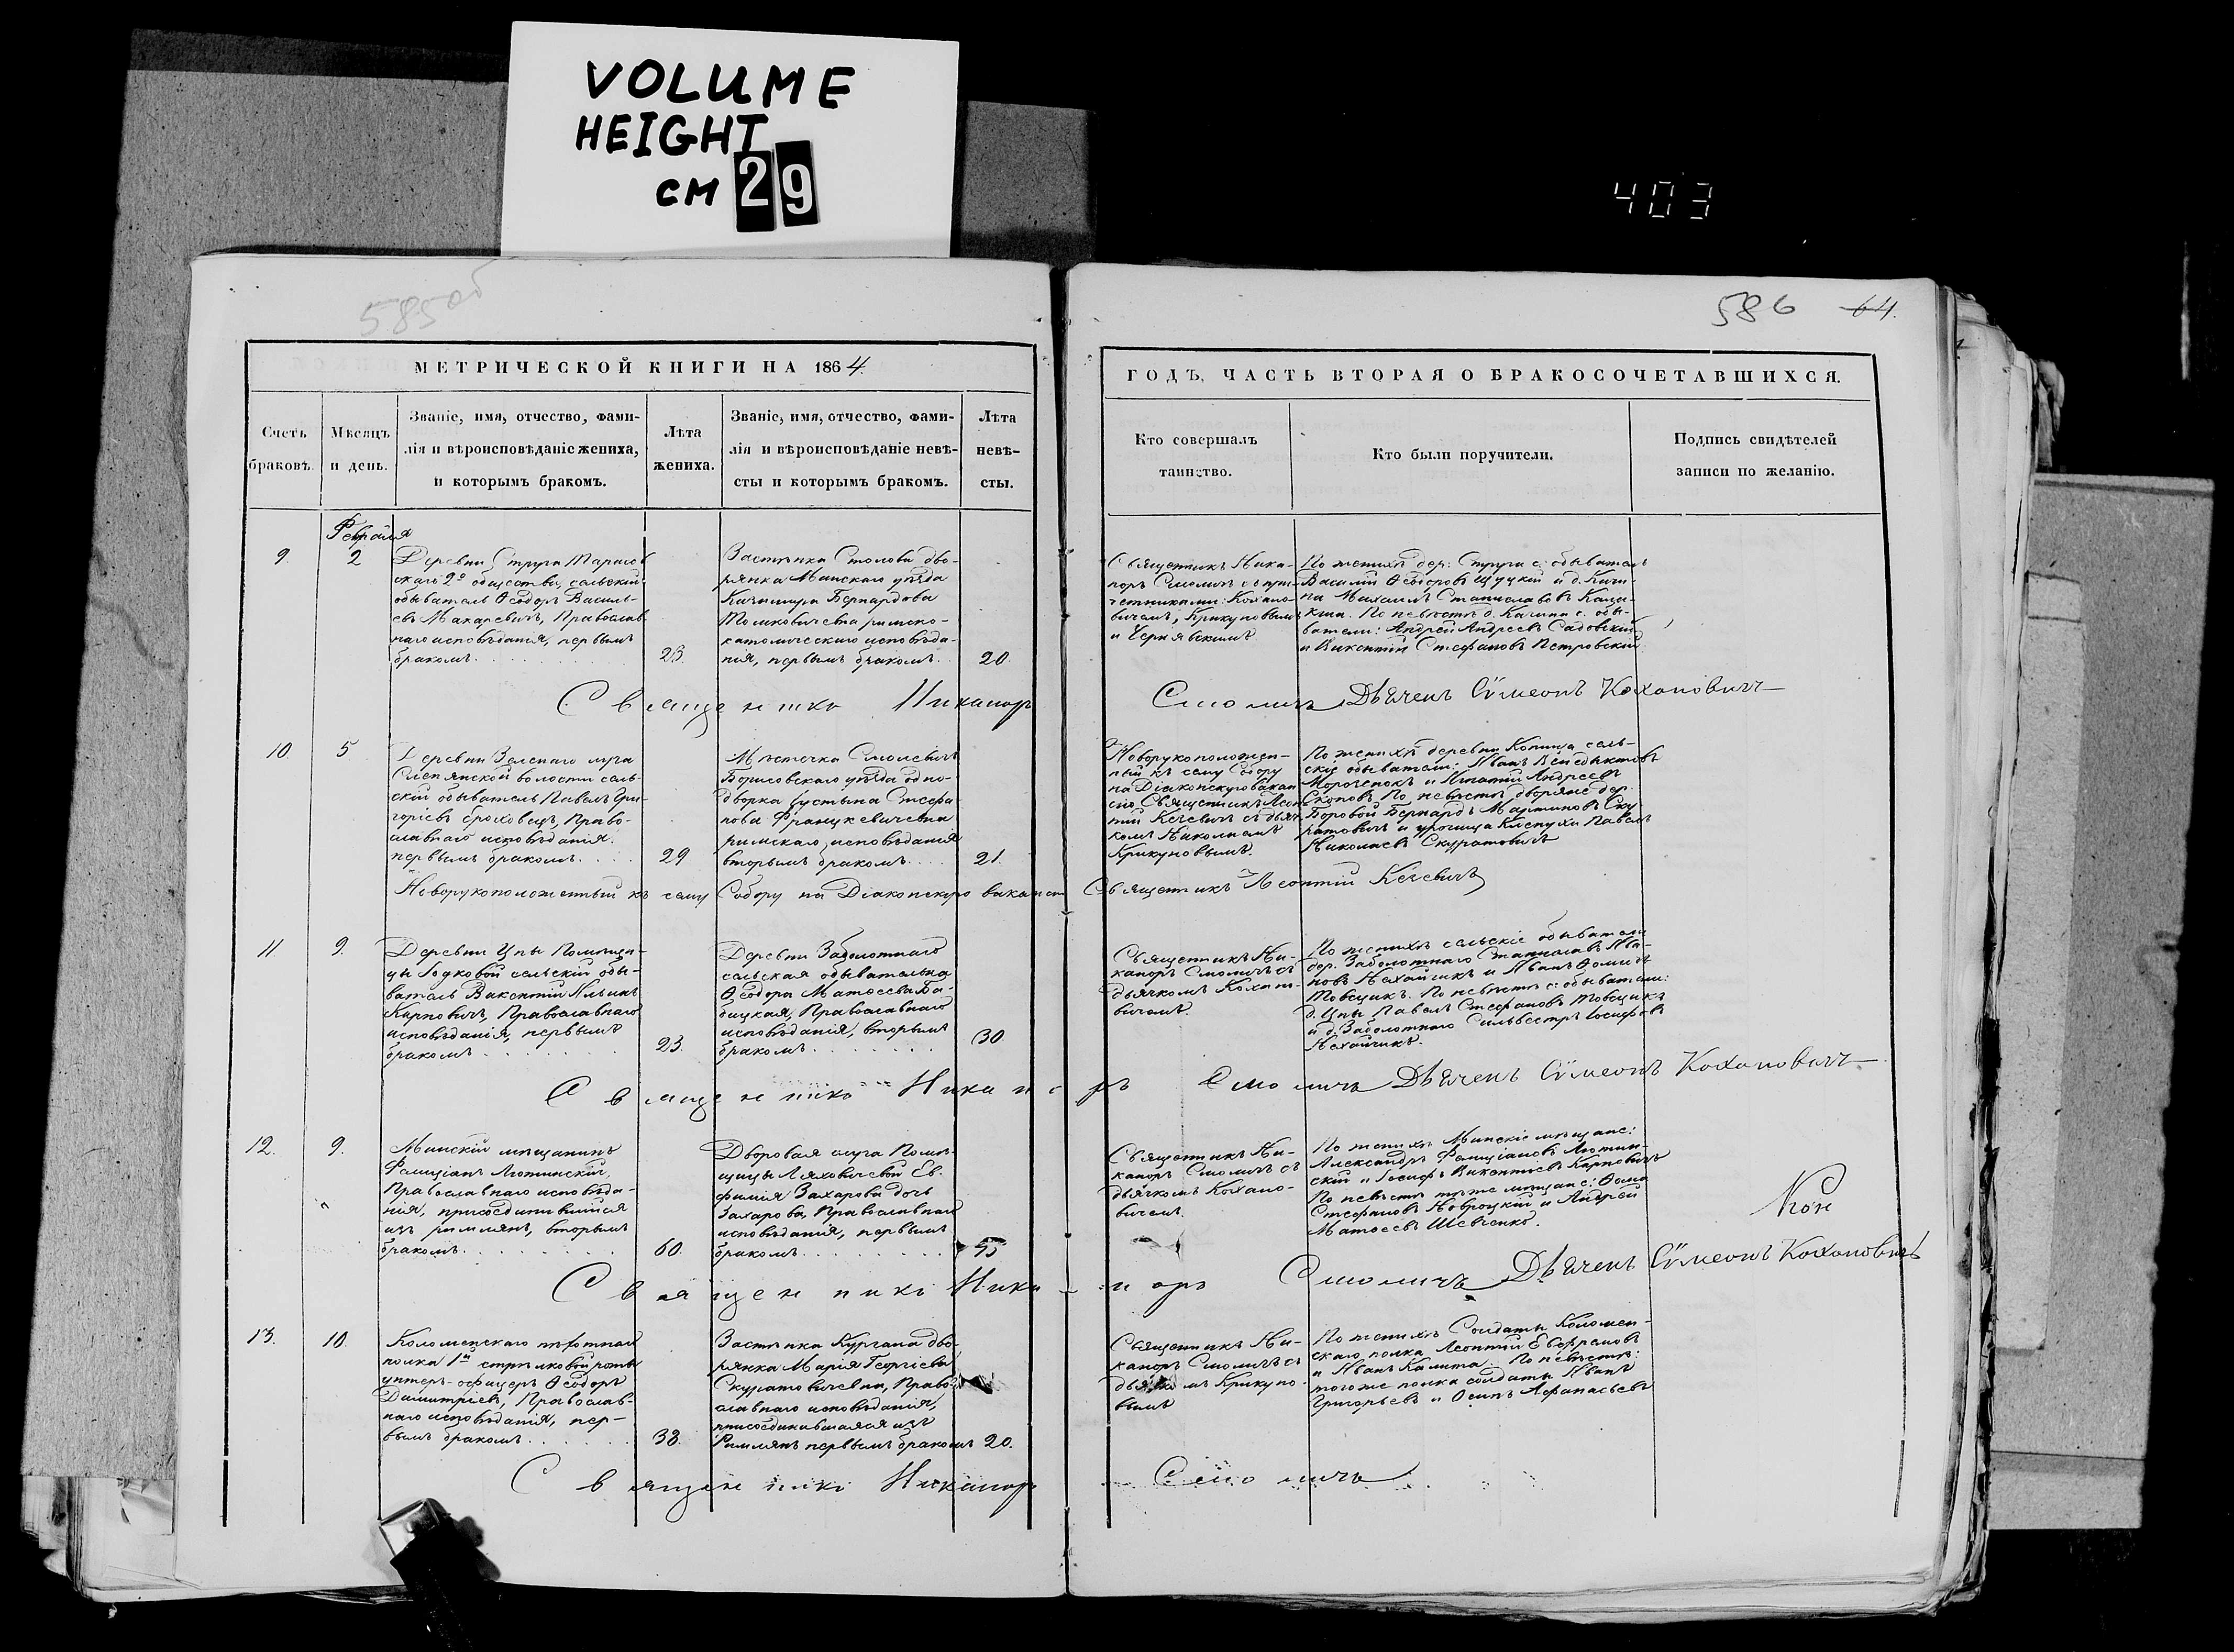 VOLUME
HEIGHT
см 29
403
585об
586 64.
МЕТРИЧЕСКОЙ КНИГИ НА 1864.
Счетъ браковъ.
Мѣсяцъ и день.
Званіе, имя, отчество, фами-
лія и вѣроисповѣданіе жениха,
и которымъ бракомъ.
Лѣта
жениха.
Званіе, имя, отчество, фами-
лія и вѣроисповѣданіе невѣ-
сты и которымъ бракомъ.
Лѣта
невѣ-
сты.
ГОДЪ, ЧАСТЬ ВТОРАЯ О БРАКОСОЧЕТАВШИХСЯ.
Кто совершалъ
таинство.
Кто были поручители.
Подпись свидѣтелей
записи по желанію.
Февраля
9. 2
Деревни Струга Тарасов
скаго 2º общества, сельскій
обыватель Ѳеодоръ Василь-
евъ Макаревичъ, Православ
наго исповѣданія, первымъ
бракомъ
23.
Застѣнка дво-
рянка Минскаго уѣзда
Казимира Бернардова
римско-
католическаго исповѣда-
нія, первымъ бракомъ
20.
Священникъ Ника-
норъ Смоличъ съ при-
четниками: Кохано-
вичемъ, Крикуновымъ
и Чернявскимъ
По женихѣ дер. Струга с. обыватель
Василій Ѳеодоровъ Щуцкій и д. Кали-
на Михаилъ Станиславовъ
По невѣстѣ д. Калина с. обы-
ватели: Андрей Андреевъ Садовскій
и Викентій Стефановъ Петровскій
Священникъ Никаноръ Смоличъ Дьячекъ Сѵмеонъ Кохановичъ
10. 5
Деревни Зеленаго луга
Слепянской волости сель-
скій обыватель Павелъ Гри-
горіевъ Право-
славнаго исповѣданія
первымъ бракомъ
29
Мѣстечка Смолевичъ
Борисовскаго уѣзда одно-
дворка Іустына Стефа-
нова Францкевичевна
римскаго исповѣданія
вторымъ бракомъ
21.
Новорукоположен-
ный къ сему Собору
на Діаконскую вакан
сію Священникъ Леон
тій Кечевичъ съ дьяч
комъ Николаемъ
Крикуновымъ.
По женихѣ деревни Копища сель-
скіе обыватели: Иванъ Венедиктовъ
Мороченокъ и Игнатій Андреевъ
Скоповъ. По невѣстѣ дворяне дер.
Боровой Бернардъ Мартиновъ Ску
ратовичъ и урочища Клепухи Павелъ
Николаевъ Скуратовичъ
Новорукоположенный къ сему Собору на Діаконскую вакансію Священникъ Леонтій Кечевичъ
11. 9.
Деревни Цны Помѣщи-
цы сельскій обы-
ватель Викентій Ильинъ
Карповичъ, Православнаго
исповѣданія, первымъ
бракомъ
23.
Деревни Заболотнаго
сельская обывательна
Ѳеодора Матѳеева Ба-
бицкая, Православнаго
исповѣданія, вторымъ
бракомъ
30
Священникъ Ни-
каноръ Смоличъ съ
дьячкомъ Кохано-
вичемъ
По женихѣ сельскіе обыватели
дер. Заболотнаго Станиславъ Ива-
новъ Нехайчикъ и Иванъ Ѳоминъ
Товщикъ. По невѣстѣ с. обыватели:
д. Цны Павелъ Стефановъ Товщикъ
и д. Заболотнаго Сильвестръ Іосифовъ
Нехайчикъ.
Священникъ Никаноръ Смоличъ Дьячекъ Сѵмеонъ Кохановичъ
12. 9.
Минскій мѣщанинъ
Фелиціанъ Лютинскій,
Православнаго исповѣда-
нія, присоединившійся
изъ римлянъ, вторымъ
бракомъ
60.
Дворовая слуга Помѣ-
щицы Ляховичевой Ев-
фимія Захарова дочь
Захарова, Православнаго
исповѣданія, первымъ
бракомъ
45
Священникъ Ни-
каноръ Смоличъ съ
дьячкомъ Кохано-
вичемъ.
По женихѣ Минскіе мѣщане:
Александръ Фелиціановъ Лютин-
скій и Іосифъ Викентіевъ Карповичъ
По невѣстѣ тѣже мѣщане: Ѳома
Стефановъ и Андрей
Матѳеевъ Шевченко.
Священникъ Никаноръ Смоличъ Дьячекъ Сѵмеонъ Кохановичъ
13. 10.
Коломенскаго пѣхотнаго
полка 1й стрѣлковой роты
унтеръ-офицеръ Ѳеодоръ
Димитріевъ, Православ-
наго исповѣданія, пер-
вымъ бракомъ
38.
Застѣнка Кургана дво-
рянка Марія Георгіева
Скуратовичевна, Право-
славнаго исповѣданія,
присоединившаяся изъ
Римлянъ первымъ бракомъ 20.
Священникъ Ни-
каноръ Смоличъ съ
дьячкомъ Крикуно-
вымъ
По женихѣ Солдаты Коломен-
скаго полка Леонтій Евфремовъ
и Иванъ Калита. По невѣстѣ:
тогоже полка солдаты Иванъ
Григорьевъ и Осипъ Афанасьевъ
Священникъ Никаноръ Смоличъ